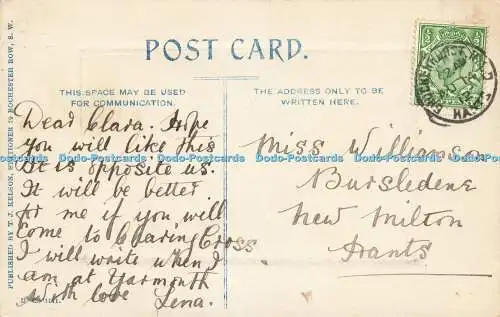 POST CARD.
THIS SPACE MAY BE USED
FOR COMMUNICATION.
THE ADDRESS ONLY TO BE
WRITTEN HERE.
PUBLISHED BY T. J. NELSON, STATIONER 79 ROCHESTER ROW, S. W.
Dear Clara. Hope
you will like this
It is opposite us.
It will be better
for me if you will
Come to Charing Cross
I will write when I
am at Yarmouth
With love Lena.
Miss Williamson
Bursledene
New Milton
Hants
Dodo-Postcards Dodo-Postcards Dodo-Postcards Dodo-Postcards Dodo-Postcards
Dodo-Postcards Dodo-Postcards Dodo-Postcards